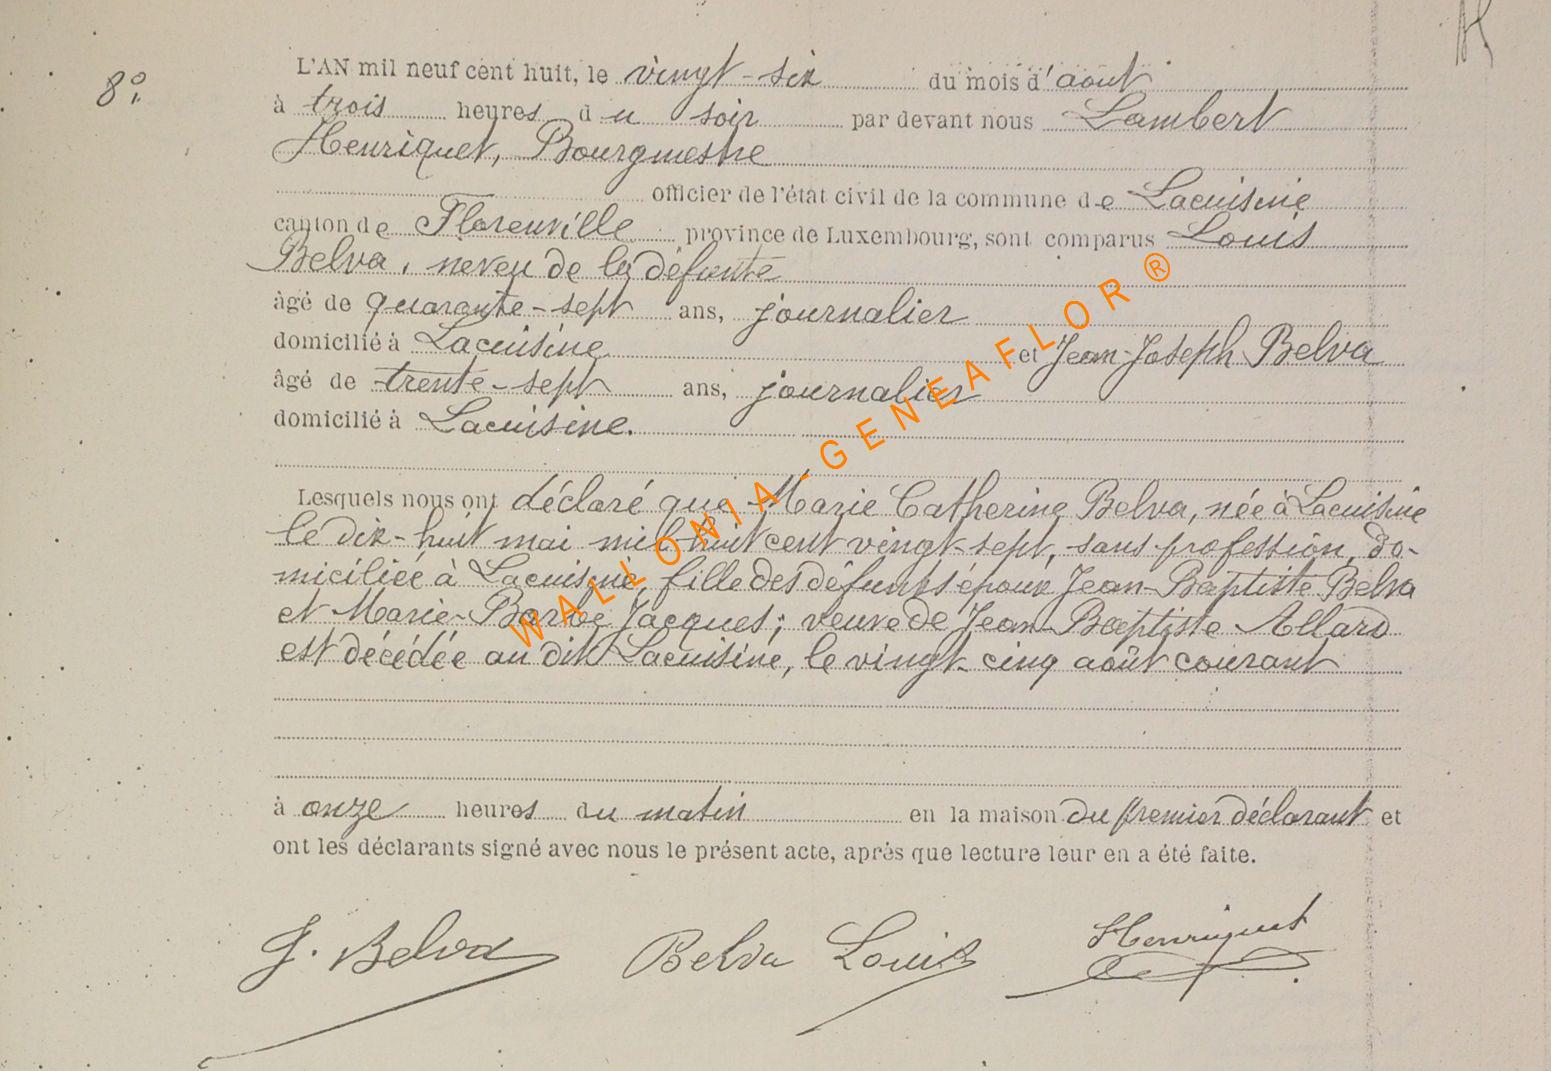 8°
L'AN mil neuf cent huit, le vingt-six du mois d'aout
à trois heures du soir par devant nous Lambert
Henriquet, Bourgmestre
officier de l'état civil de la commune de Lacuisine
canton de Florenville province de Luxembourg, sont comparus Louis
Belva, neveu de la défunte
âgé de quarante-sept ans, journalier
domicilié à Lacuisine et Jean-Joseph Belva
âgé de trente-sept ans, journalier
domicilié à Lacuisine.
Lesquels nous ont déclaré que Marie Catherine Belva, née à Lacuisine
le dix-huit mai mil huit cent vingt-sept, sans profession, do-
miciliée à Lacuisine, fille des défunts époux Jean-Baptiste Belva
et Marie-Barbe Jacques; veuve de Jean-Baptiste Allard
est décédée au dit Lacuisine, le vingt-cinq août courant
à onze heures du matin en la maison du premier déclarant et
ont les déclarants signé avec nous le présent acte, après que lecture leur en a été faite.
J. Belva Belva Louis Henriquet
WALLONIA-GENEAFLOR®